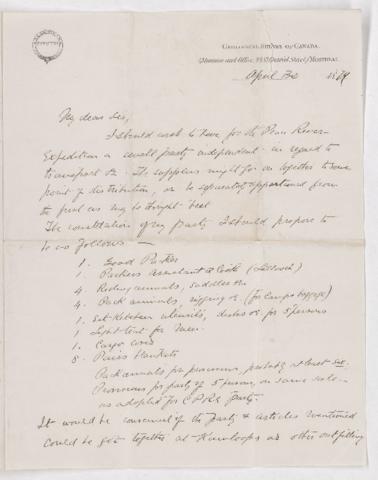 GEOLOGICAL SURVEY OF CANADA.
Museum and Office, St. Gabriel Street, MONTREAL
April 3d 1879
My dear Sir,
I should wish to have for the Pine River
Expedition a small party independent in regard to
transport &c. Its supplies might go on together to some
point of distribution, or be separately apportioned from
the first as may be thought best
The constitution of my party I should propose to
be as follows —
1. Good Packer
1. Packers assistant & Cook
4. Riding animals, saddles &c
4. Pack animals, rigging &c. (for Camp & baggage)
1. Set Kitchen utensils, dishes &c for 5 persons
1. Light tent for men.
1. Camp
8. Pairs blankets
Pack animals for provisions, probably at least six.
Provisions for party of 5 persons, on same scale
as adopted for C P Ry party.
It would be convenient if the party & articles mentioned
could be got together at Kamloops or other outfitting